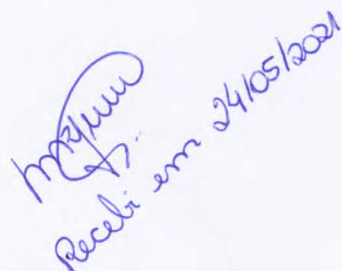 Recebi em 24/05/2021